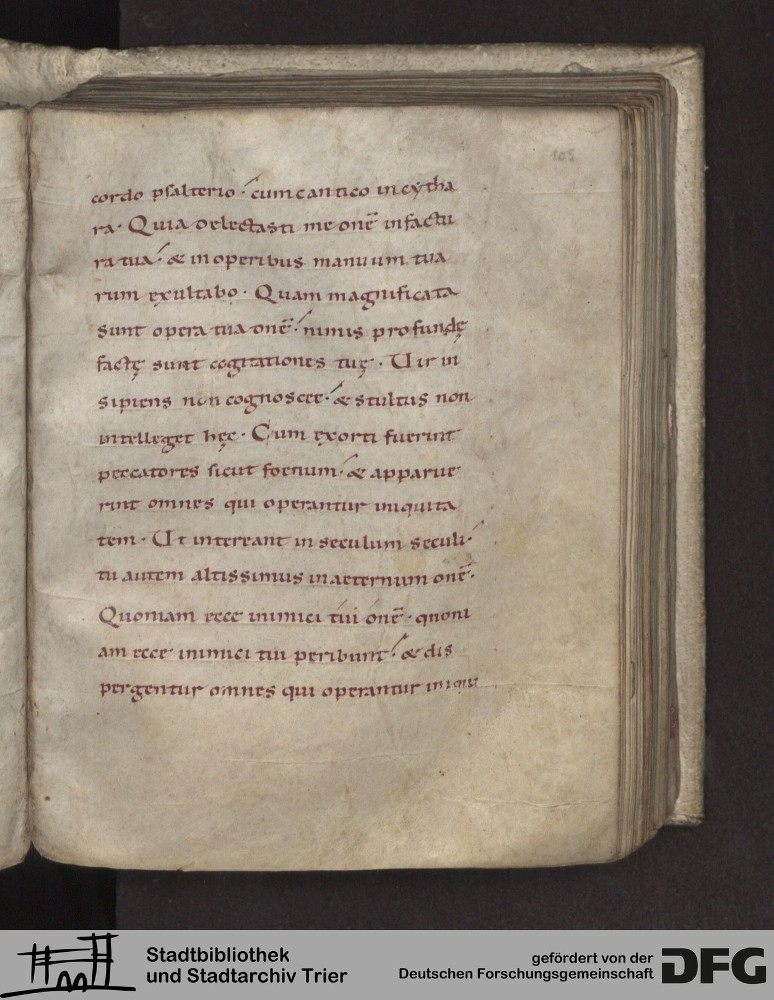 105
cordo psalterio · cum cantico in cytha
ra · Quia delectasti me dnē in factu
ra tua · & in operibus manuum tua
rum exultabo · Quam magnificata
sunt opera tua dnē · nimis profundę
factę sunt cogitationes tuę · Uir in
sipiens non cognoscet · & stultus non
intelleget hęc · Cum exorti fuerint
peccatores sicut foenum · & apparue
rint omnes qui operantur iniquita
tem · Ut intereant in seculum seculi ·
tu autem altissimus in aeternum dnē ·
Quoniam ecce inimici tui dnē · quoni
am ecce inimici tui peribunt · & dis
pergentur omnes qui operantur iniqui
Stadtbibliothek
und Stadtarchiv Trier
gefördert von der
Deutschen Forschungsgemeinschaft
DFG